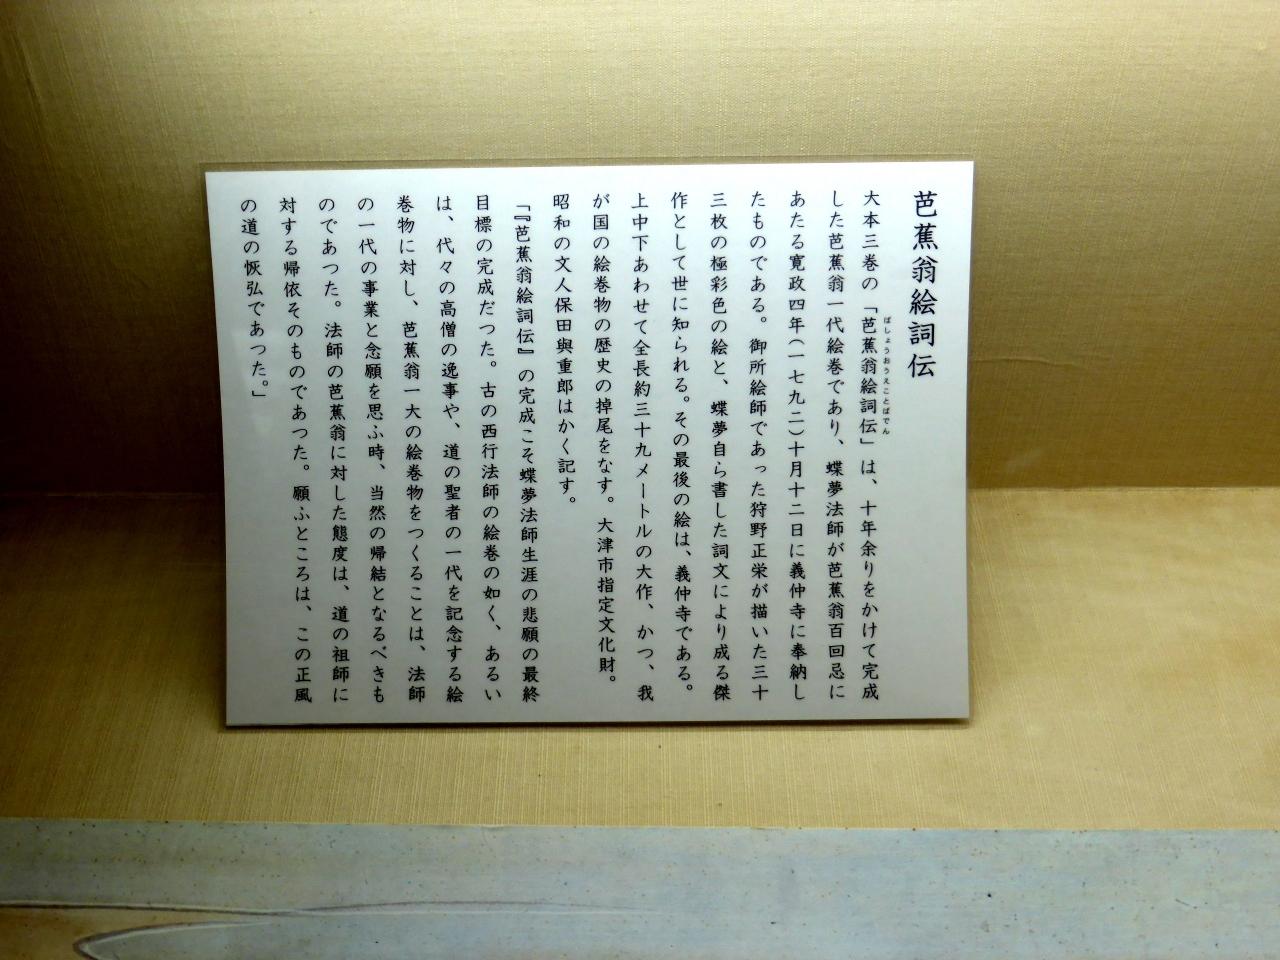 芭蕉翁絵詞伝
大本三巻の「芭蕉翁絵詞伝」は、十年余りをかけて完成
ばしょうおうえことばでん
した芭蕉翁一代絵巻であり、蝶夢法師が芭蕉翁百回忌に
あたる寛政四年(一七九二)十月十二日に義仲寺に奉納し
たものである。御所絵師であった狩野正栄が描いた三十
三枚の極彩色の絵と、蝶夢自ら書した詞文により成る傑
作として世に知られる。その最後の絵は、義仲寺である。
上中下あわせて全長約三十九メートルの大作、かつ、我
が国の絵巻物の歴史の掉尾をなす。大津市指定文化財。
昭和の文人保田與重郎はかく記す。
「『芭蕉翁絵詞伝』の完成こそ蝶夢法師生涯の悲願の最終
目標の完成だつた。古の西行法師の絵巻の如く、あるい
は、代々の高僧の逸事や、道の聖者の一代を記念する絵
巻物に対し、芭蕉翁一大の絵巻物をつくることは、法師
の一代の事業と念願を思ふ時、当然の帰結となるべきも
のであつた。法師の芭蕉翁に対した態度は、道の祖師に
対する帰依そのものであつた。願ふところは、この正風
の道の恢弘であつた。」